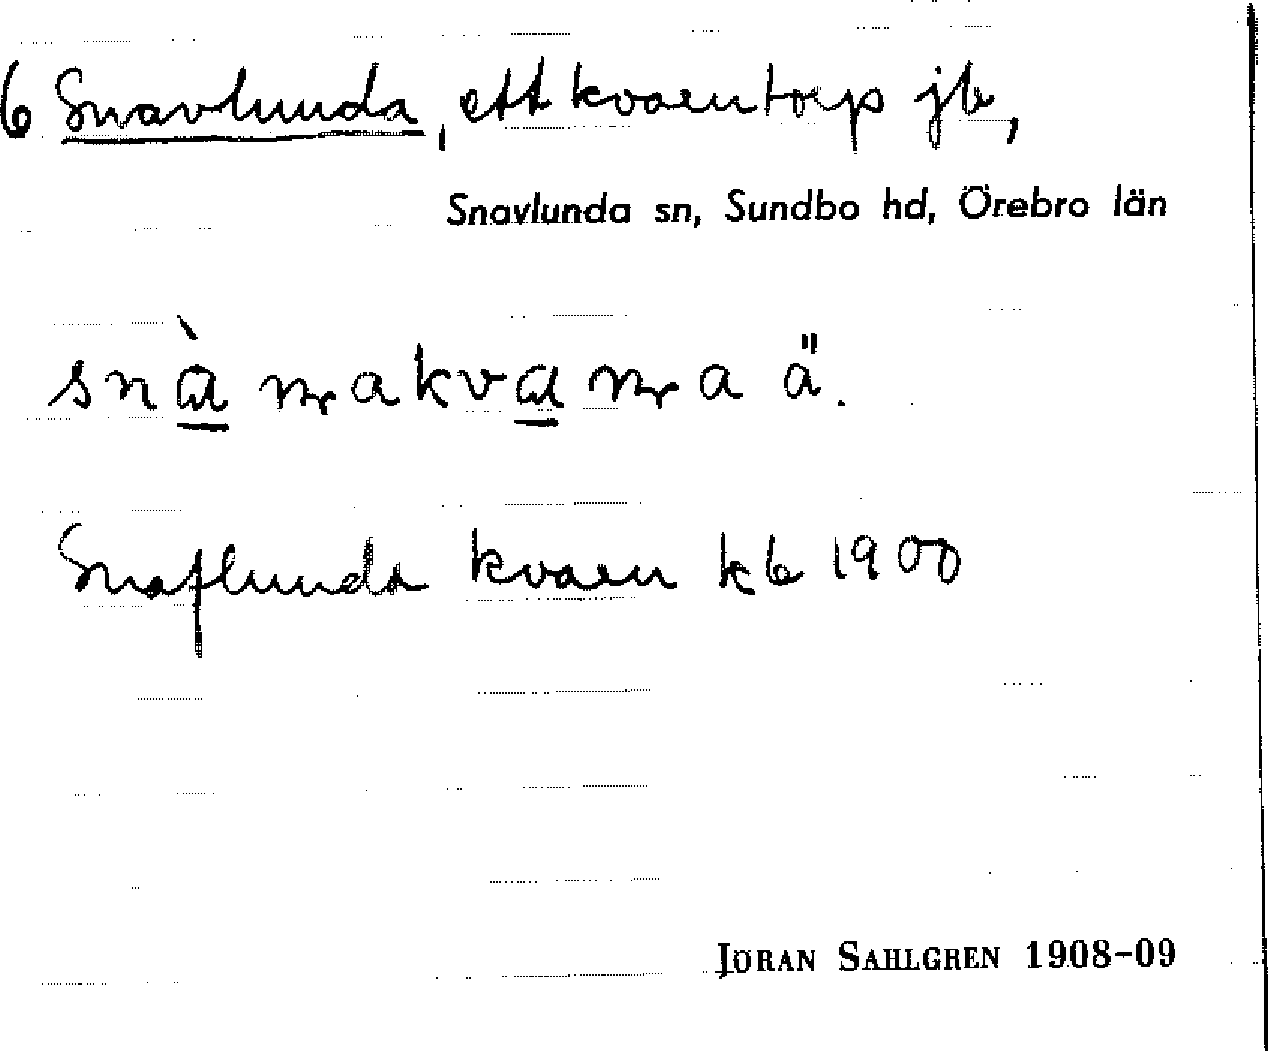 6 Snavlunda, ett kvarntorp jb,
Snavlunda sn, Sundbo hd, Örebro län
ä.
Snaflunda kvarn kb 1900
JÖRAN SAHLGREN 1908-09